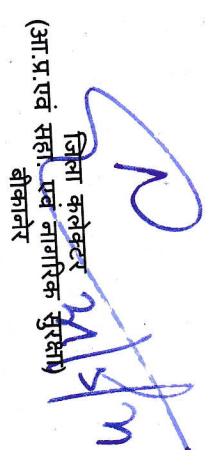 जिला कलेक्टर
(आ.प्र.एवं सहा. एवं नागरिक सुरक्षा)
बीकानेर